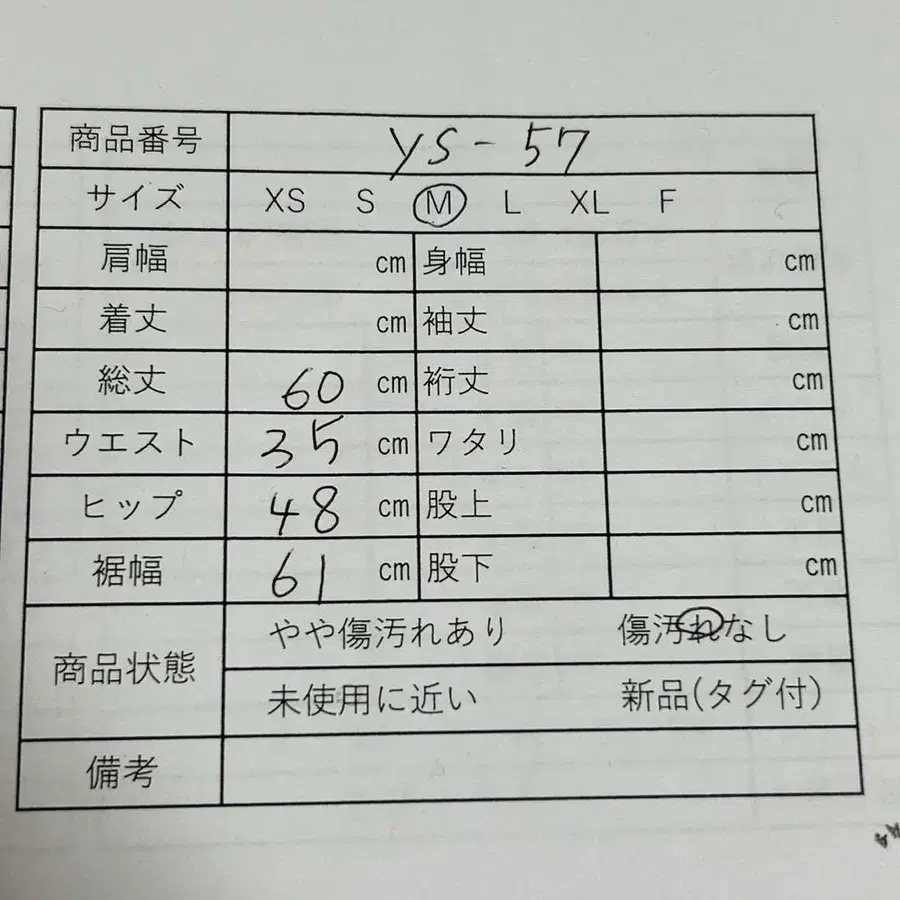 商品番号 YS-57
サイズ XS S M L XL F
肩幅 cm 身幅 cm
着丈 cm 袖丈 cm
総丈 60 cm 裄丈 cm
ウエスト 35 cm ワタリ cm
ヒップ 48 cm 股上 cm
裾幅 61 cm 股下 cm
商品状態
やや傷汚れあり 傷汚れなし
未使用に近い 新品(タグ付)
備考